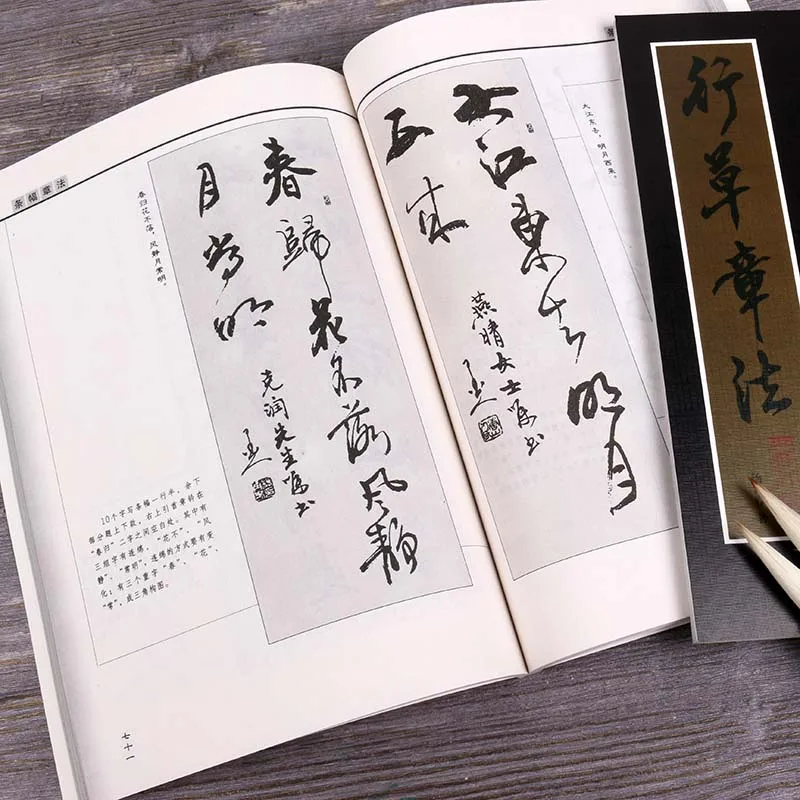 条幅章法
春归花不落，风静月常明。
春歸花不落風静
月常明
克润先生嘱书
10个字写条幅一行半，余下
部分题上下款，右上引首章钤在
“春归”二字之间空白处。其中有
三组字有连绵，“花不”、“风
静”、“常明”，连绵的方式要有变
化；有三个重字“春”、“花”、
“常”，成三角构图。
七十一
大江东去，明月西来。
大江東去明月
西来
燕晴女士嘱书
行草章法